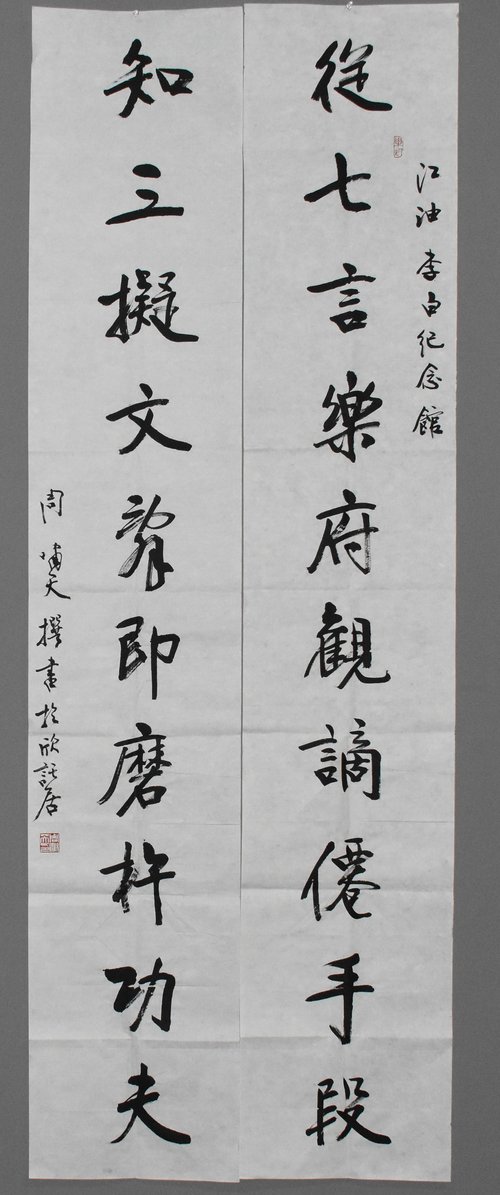 江油李白紀念館
從七言樂府観謫僊手段
知三擬文即磨杵功夫
周嘯天撰書於欣託居